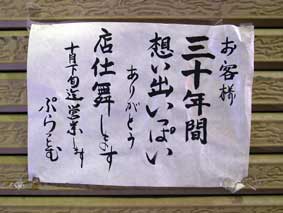 お客様
三十年間
想い出いっぱい
ありがとう
店仕舞します
十月下旬迄営業します
ぷらとむ